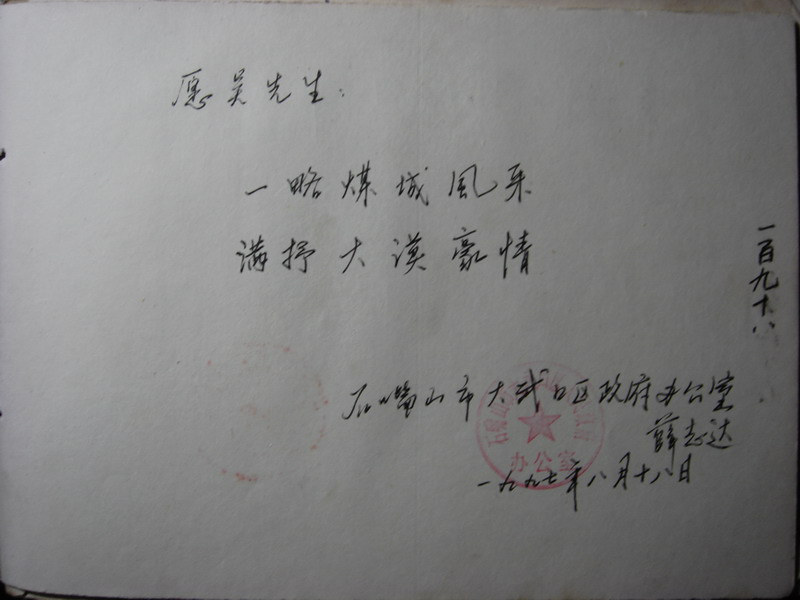 愿吴先生：
一略煤城風采
满抒大漠豪情
石嘴山市大武口区政府办公室
薛志达
一九九七年八月十八日
办公室
一百九十八